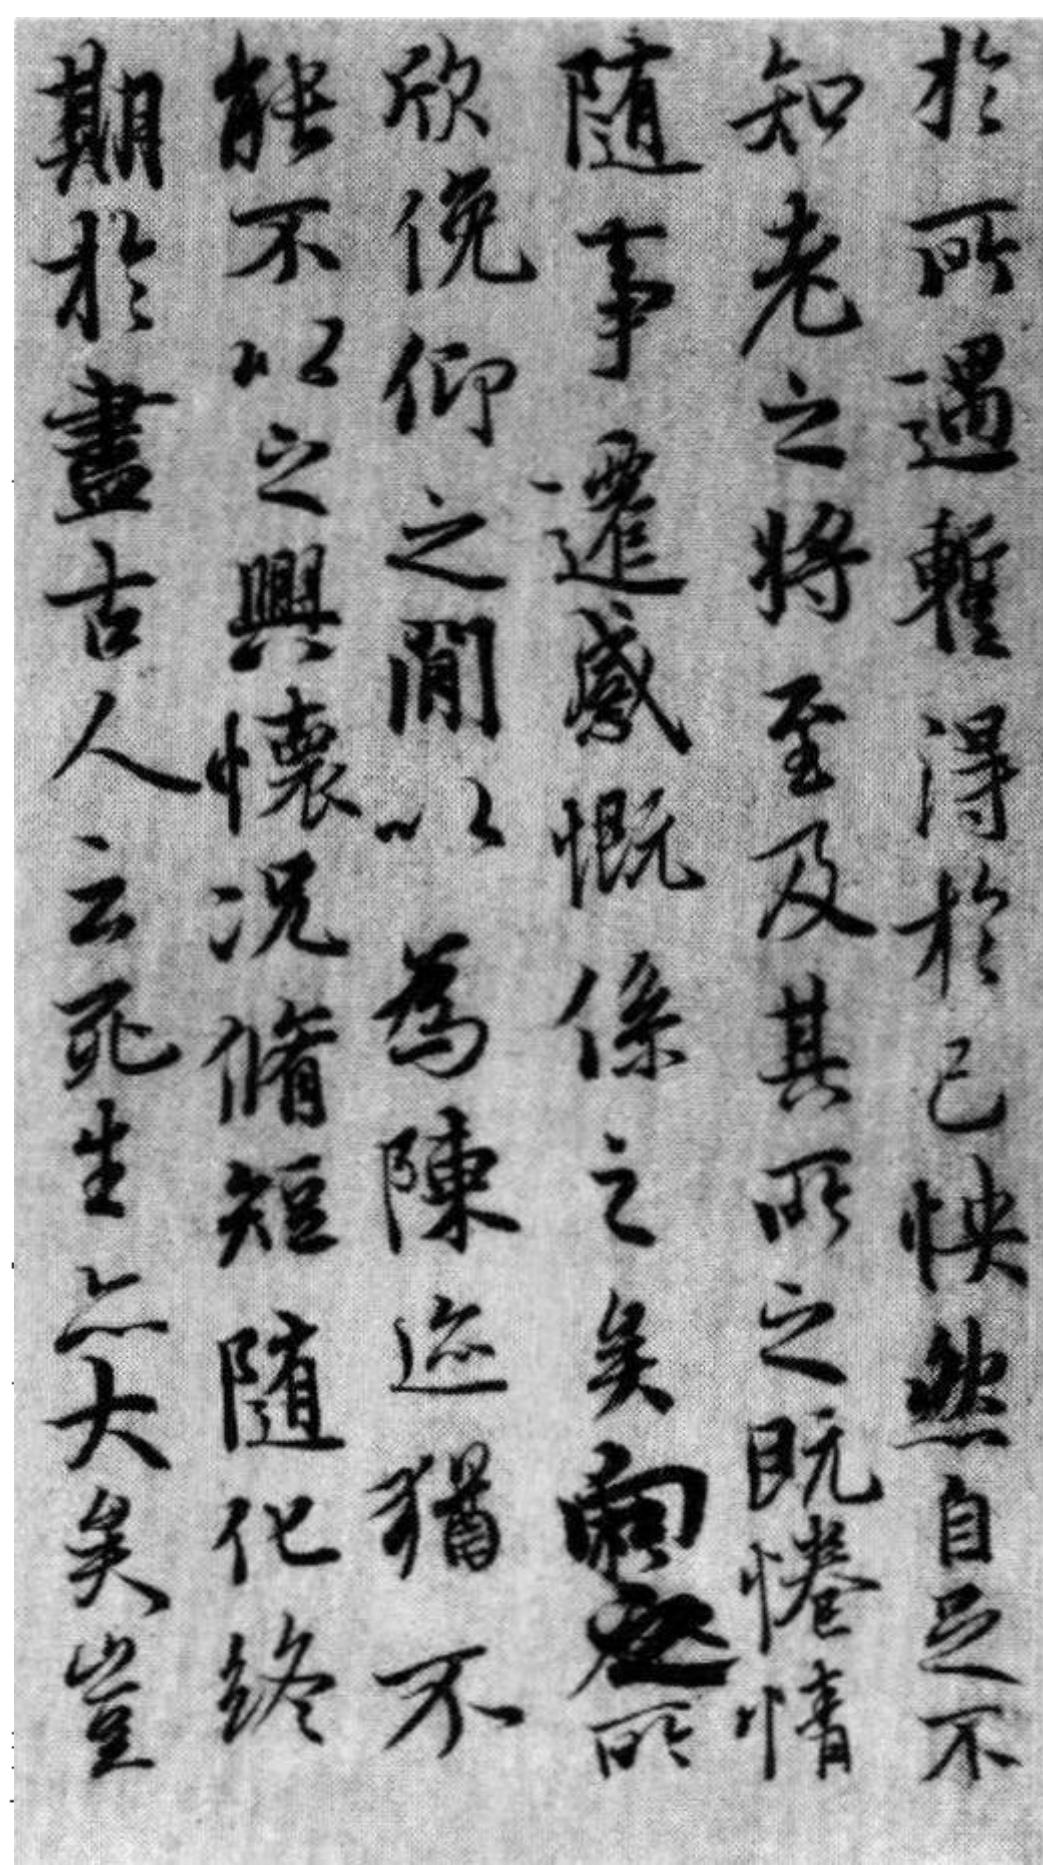 於所遇蹔得於己怏然自足不
知老之將至及其所之既惓情
随事遷感慨係之矣向之所
欣俛仰之閒以為陳迹猶不
能不以之興懷况脩短随化終
期於盡古人云死生亦大矣豈